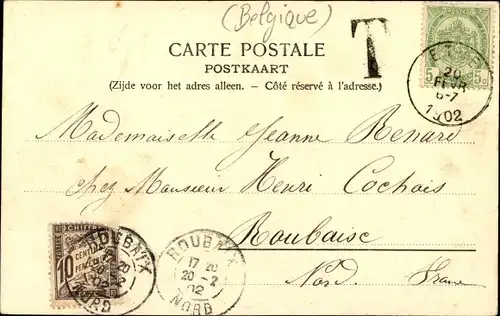 (Belgique)
T
CARTE POSTALE
POSTKAART
(Zijde voor het adres alleen. - Côté réservé à l'adresse.)
5 5
20
FEVR
6-7
1902
Mademoiselle Jeanne Renard
chez Monsieur Henri Cochois
Roubaise
Nord. France
CHIFFRE
10
ROUBAIX
17 20
20 - 2
02
NORD
ROUBAIX
17 20
20 - 2
02
NORD